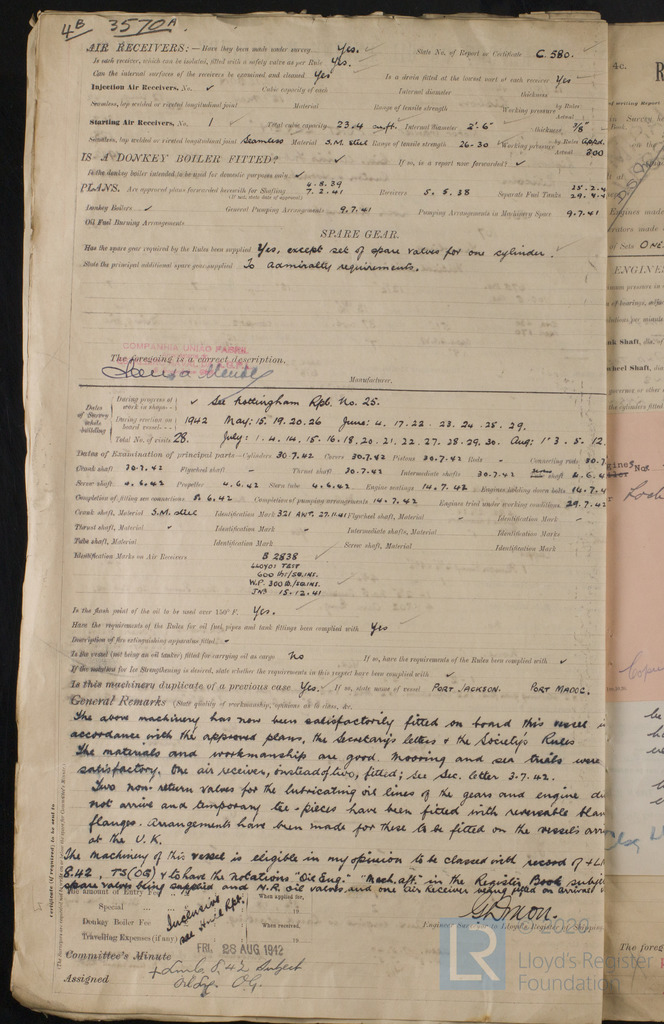 4B 3570A
AIR RECEIVERS:— Have they been made under survey Yes. State No. of Report or Certificate C. 580.
Is each receiver, which can be isolated, fitted with a safety valve as per Rule Yes.
Can the internal surfaces of the receivers be examined and cleaned Yes Is a drain fitted at the lowest part of each receiver Yes
Injection Air Receivers, No. Cubic capacity of each Internal diameter thickness
Seamless, lap welded or riveted longitudinal joint Material Range of tensile strength Working pressure by Rules Actual
Starting Air Receivers, No. 1 Total cubic capacity 23.4 cuft. Internal diameter 2'.6" thickness 7/8"
Seamless, lap welded or riveted longitudinal joint Seamless Material S.M. steel Range of tensile strength 26-30 Working pressure by Rules Appd. Actual 300
IS A DONKEY BOILER FITTED? If so, is a report now forwarded?
Is the donkey boiler intended to be used for domestic purposes only
PLANS. Are approved plans forwarded herewith for Shafting 4.8.39 7.2.41 Receivers 5.5.38 Separate Fuel Tanks
(If not, state date of approval)
Donkey Boilers General Pumping Arrangements 9.7.41 Pumping Arrangements in Machinery Space 9.7.41
Oil Fuel Burning Arrangements
SPARE GEAR.
Has the spare gear required by the Rules been supplied Yes, except set of spare valves for one cylinder.
State the principal additional spare gear supplied To Admiralty requirements.
COMPANHIA UNIÃO FABRIL
The foregoing is a correct description,
Manufacturer.
Dates of Survey while building
During progress of work in shops See Nottingham Rpt. No. 25.
During erection on board vessel 1942 May: 15. 19. 20. 26 June: 4. 17. 22. 23. 24. 25. 29.
Total No. of visits 28. July: 1. 4. 14. 15. 16. 18. 20. 21. 22. 27. 28. 29. 30. Aug: 1. 3. 5. 12.
Dates of Examination of principal parts—Cylinders 30.7.42 Covers 30.7.42 Pistons 30.7.42 Rods Connecting rods 30.7
Crank shaft 30.7.42 Flywheel shaft Thrust shaft 30.7.42 Intermediate shafts 30.7.42 shaft 4.6.4
Screw shaft 4.6.42 Propeller 4.6.42 Stern tube 4.6.42 Engine seatings 14.7.42 Engines holding down bolts 14.7.4
Completion of fitting sea connections 8.6.42 Completion of pumping arrangements 14.7.42 Engines tried under working conditions 29.7.42
Crank shaft, Material S.M. steel Identification Mark 321 ANT. 27.11.41 Flywheel shaft, Material Identification Mark
Thrust shaft, Material Identification Mark Intermediate shafts, Material Identification Marks
Tube shaft, Material Identification Mark Screw shaft, Material Identification Mark
Identification Marks on Air Receivers B 2838
LLOYDS TEST
600 lbs/sq.ins.
W.P. 300 lb/sq.ins.
JNB 15.12.41
Is the flash point of the oil to be used over 150° F. Yes.
Have the requirements of the Rules for oil fuel pipes and tank fittings been complied with Yes
Description of fire extinguishing apparatus fitted
Is the vessel (not being an oil tanker) fitted for carrying oil as cargo No If so, have the requirements of the Rules been complied with
If the notation for Ice Strengthening is desired, state whether the requirements in this respect have been complied with
Is this machinery duplicate of a previous case Yes. If so, state name of vessel PORT JACKSON. PORT MADOC.
General Remarks (State quality of workmanship, opinions as to class, &c.
The above machinery has now been satisfactorily fitted on board this vessel in
accordance with the approved plans, the Secretary's letters & the Society's Rules
The materials and workmanship are good. Mooring and sea trials were
satisfactory. One air receiver, instead of two, fitted; See Sec. letter 3.7.42.
Two non-return valves for the lubricating oil lines of the gears and engine di
not arrive and temporary tee-pieces have been fitted with reversable blan
flanges. Arrangements have been made for these to be fitted on the vessel's arr
at the U.K.
The machinery of this vessel is eligible in my opinion to be classed with record of + L
8.42, TS(OG) & to have the notations "Oil Eng." "Mach. aft." in the Register Book subje
spare valves being supplied and N.R. oil valves and one air receiver being fitted on arrival
The amount of Entry Fee When applied for,
Special Inclusive
Donkey Boiler Fee see Hull Rpt. When received,
Travelling Expenses (if any)
Engineer Surveyor to Lloyd's Register of Shipping
FRI. 28 AUG 1942
Committee's Minute
Assigned + LMC 8.42 Subject
Oil Eng. O.G.
© 2020
LR
Lloyd's Register
Foundation
4c.
ONE.
ENGINE
The foreg